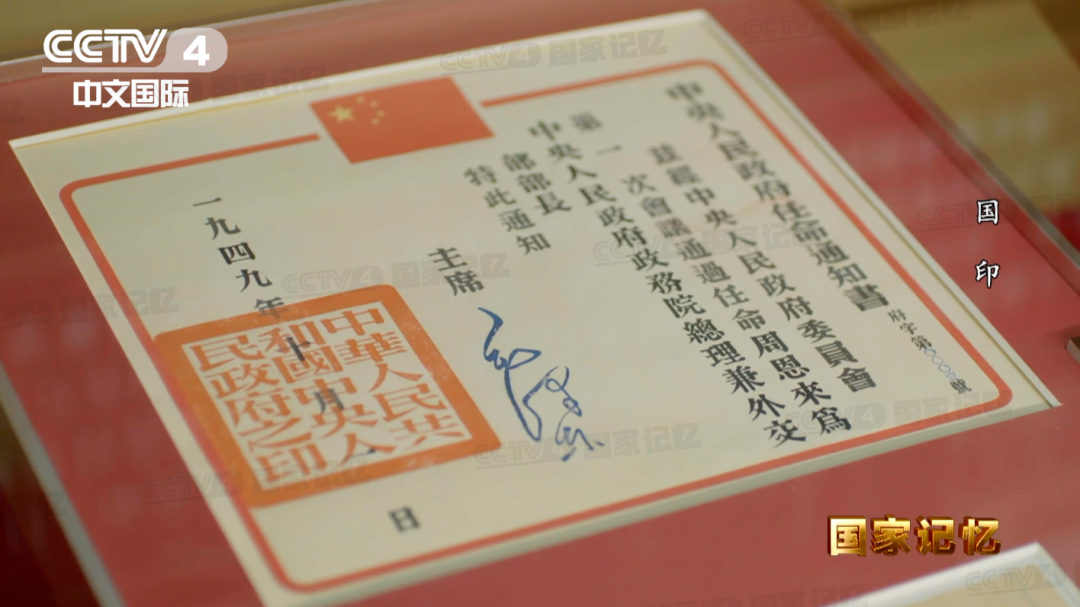 CCTV 4
中文国际
中央人民政府任命通知書
府字第 號
茲經中央人民政府委員會
第一次會議通過任命周恩來爲
中央人民政府政務院總理兼外交
部部長
特此通知
主席
一九四九年十月一日
中華人民共
和國中央人
民政府之印
国印
国家记忆